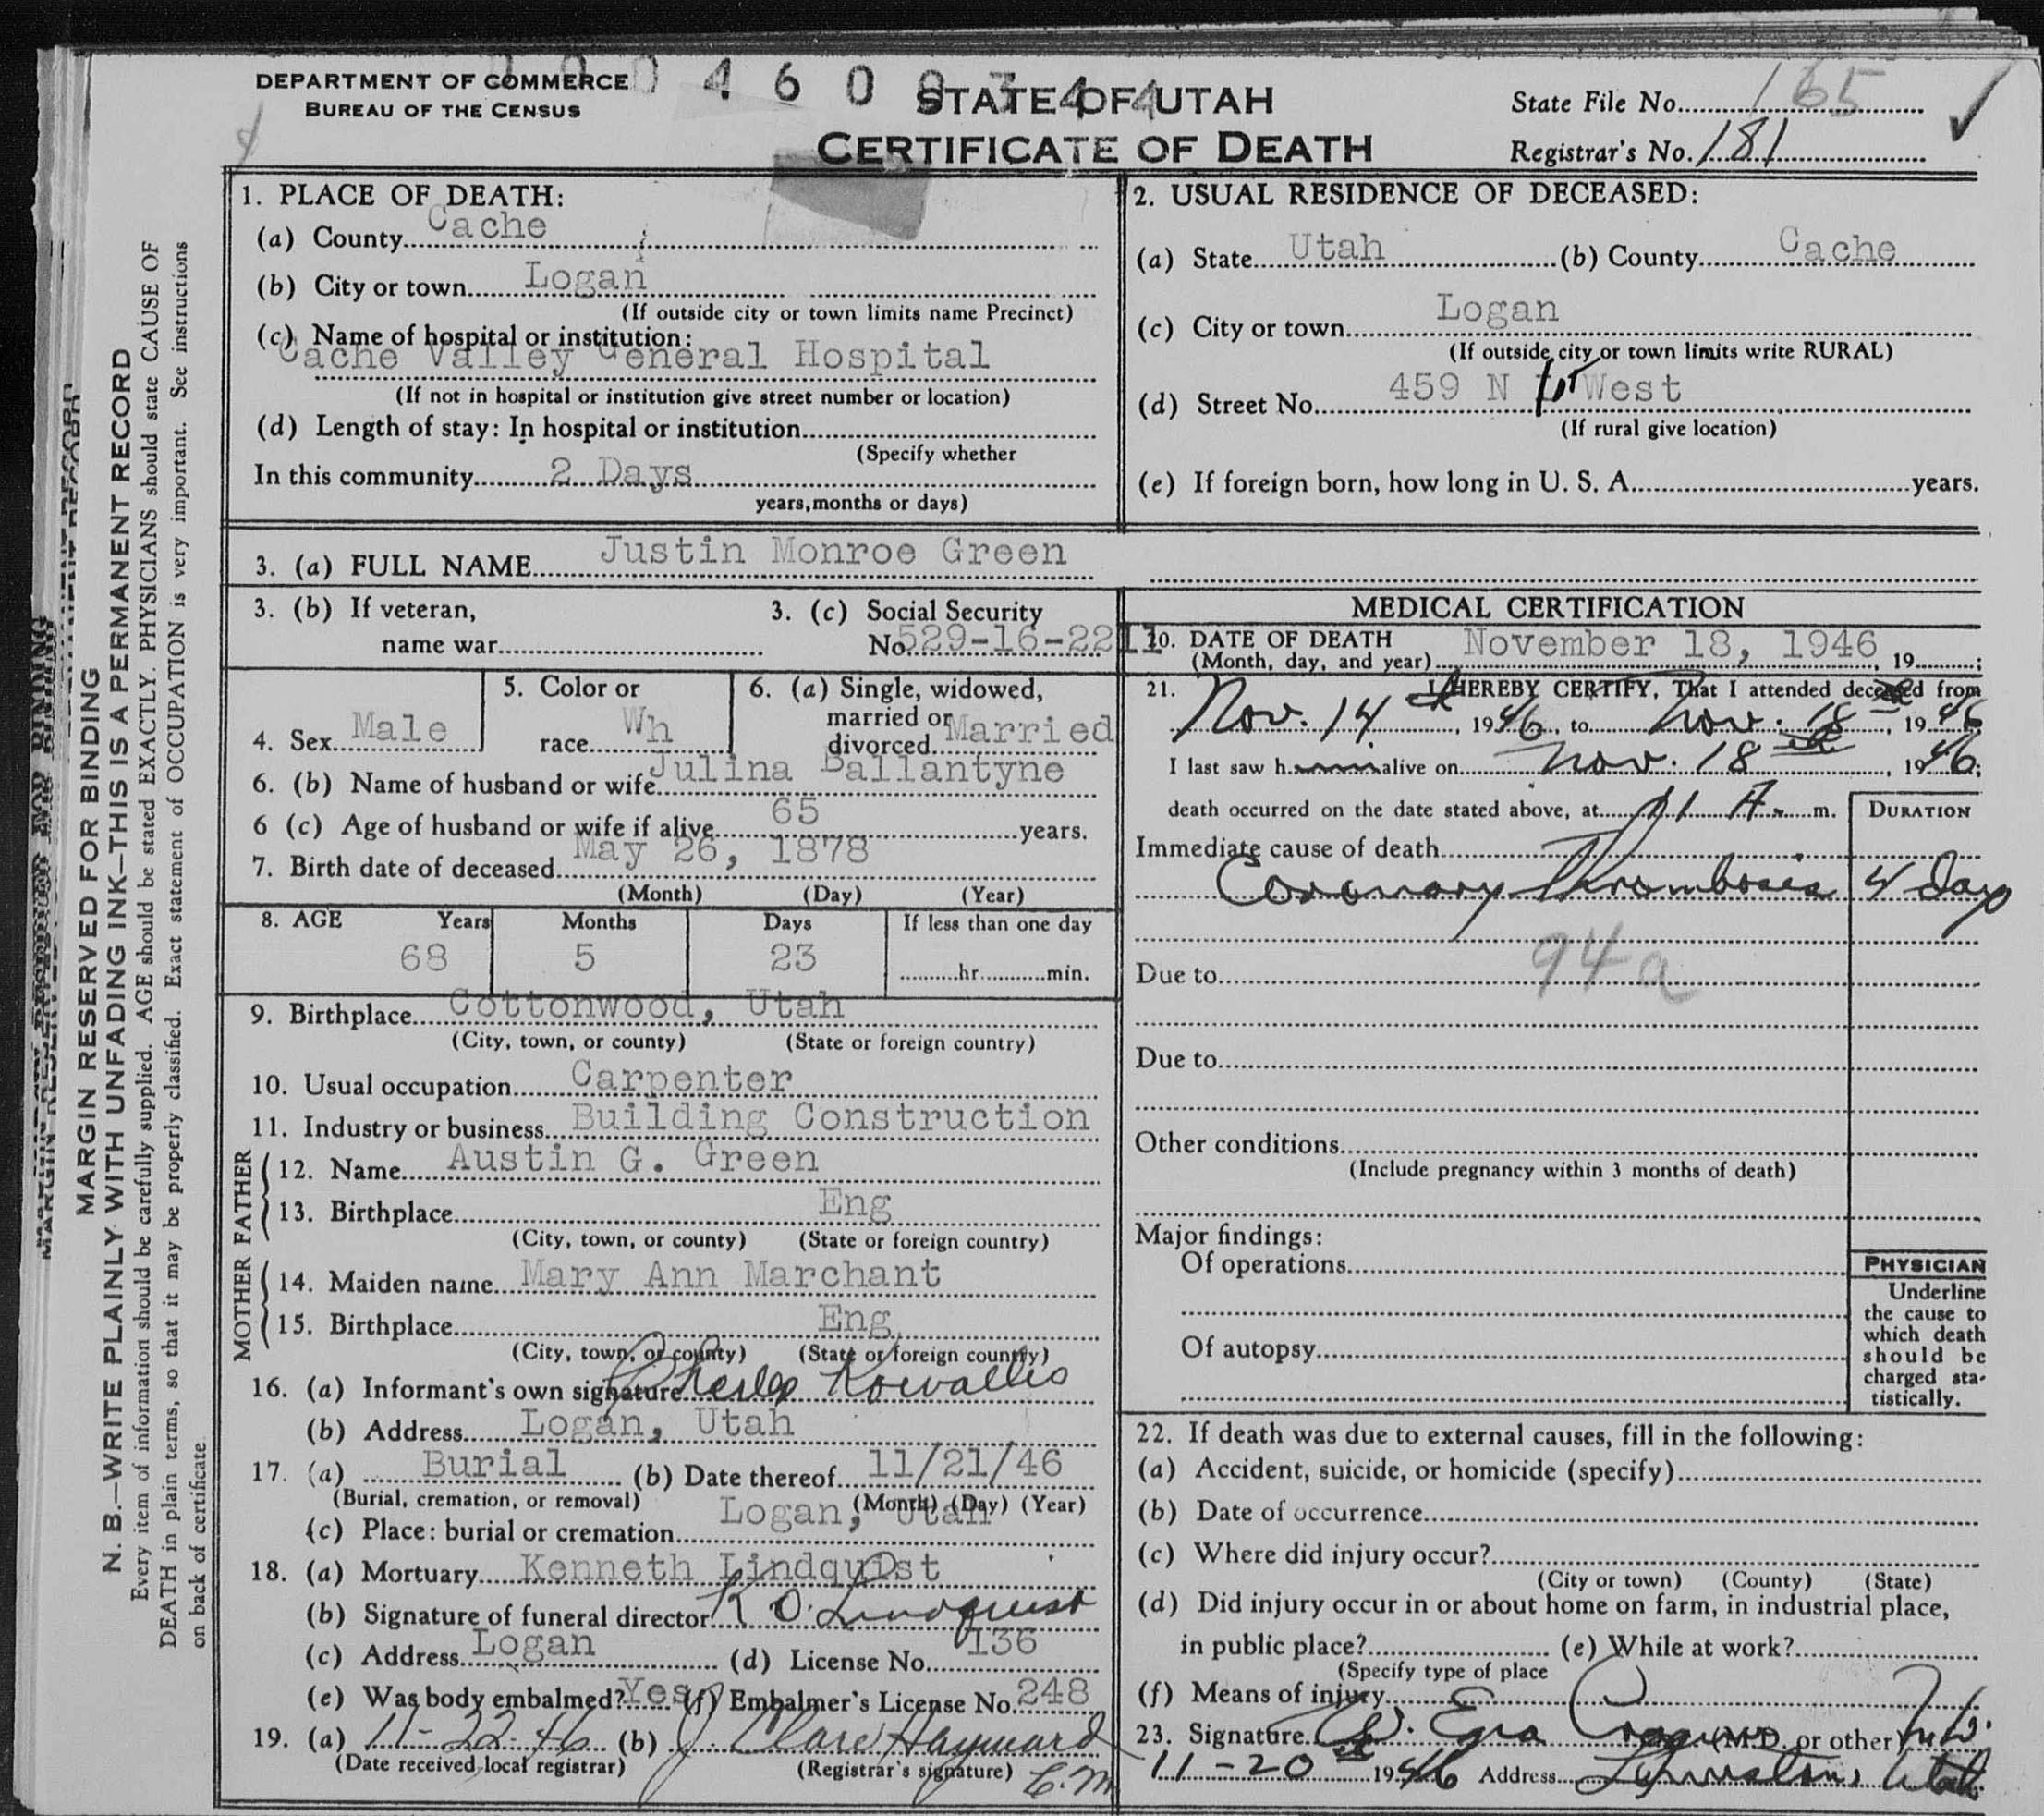 DEPARTMENT OF COMMERCE
BUREAU OF THE CENSUS
STATE OF UTAH
CERTIFICATE OF DEATH
State File No. 165
Registrar's No. 181
MARGIN RESERVED FOR BINDING
N. B.—WRITE PLAINLY WITH UNFADING INK—THIS IS A PERMANENT RECORD
Every item of information should be carefully supplied. AGE should be stated EXACTLY. PHYSICIANS should state CAUSE OF
DEATH in plain terms, so that it may be properly classified. Exact statement of OCCUPATION is very important. See instructions
on back of certificate
1. PLACE OF DEATH:
(a) County Cache
(b) City or town Logan
(If outside city or town limits name Precinct)
(c) Name of hospital or institution:
Cache Valley General Hospital
(If not in hospital or institution give street number or location)
(d) Length of stay: In hospital or institution
(Specify whether
In this community 2 Days
years, months or days)
2. USUAL RESIDENCE OF DECEASED:
(a) State Utah (b) County Cache
(c) City or town Logan
(If outside city or town limits write RURAL)
(d) Street No. 459 N West
(If rural give location)
(e) If foreign born, how long in U. S. A. years.
3. (a) FULL NAME Justin Monroe Green
3. (b) If veteran,
name war
3. (c) Social Security
No. 529-16-2211
4. Sex Male
5. Color or
race Wh
6. (a) Single, widowed,
married or
divorced Married
6. (b) Name of husband or wife Julina Ballantyne
6 (c) Age of husband or wife if alive 65 years.
7. Birth date of deceased May 26, 1878
(Month) (Day) (Year)
8. AGE Years Months Days If less than one day
68 5 23 hr. min.
9. Birthplace Cottonwood, Utah
(City, town, or county) (State or foreign country)
10. Usual occupation Carpenter
11. Industry or business Building Construction
FATHER
12. Name Austin G. Green
13. Birthplace Eng
(City, town, or county) (State or foreign country)
MOTHER
14. Maiden name Mary Ann Marchant
15. Birthplace Eng
(City, town, or county) (State or foreign country)
16. (a) Informant's own signature Kowallis
(b) Address Logan, Utah
17. (a) Burial (b) Date thereof 11/21/46
(Burial, cremation, or removal) (Month) (Day) (Year)
(c) Place: burial or cremation Logan, Utah
18. (a) Mortuary Kenneth Lindquist
(b) Signature of funeral director K O. Lindquist
(c) Address Logan (d) License No. 136
(e) Was body embalmed? Yes (f) Embalmer's License No. 248
19. (a) 11-22-46 (b) J. Clare Hayward
(Date received local registrar) (Registrar's signature) C.M.
MEDICAL CERTIFICATION
20. DATE OF DEATH November 18, 1946, 19 ;
(Month, day, and year)
21. I HEREBY CERTIFY, That I attended deceased from
Nov. 14th, 1946, to Nov. 18th, 1946
I last saw h alive on Nov. 18th, 1946;
death occurred on the date stated above, at 11 A. m.
DURATION
Immediate cause of death
Coronary Thrombosis 4 Days
94a
Due to
Due to
Other conditions
(Include pregnancy within 3 months of death)
Major findings:
Of operations
Of autopsy
PHYSICIAN
Underline
the cause to
which death
should be
charged sta-
tistically.
22. If death was due to external causes, fill in the following:
(a) Accident, suicide, or homicide (specify)
(b) Date of occurrence
(c) Where did injury occur?
(City or town) (County) (State)
(d) Did injury occur in or about home on farm, in industrial place,
in public place? (e) While at work?
(Specify type of place
(f) Means of injury
23. Signature W. Ezra (M.D. or other) M.D.
11-20th 1946 Address Lewiston, Utah